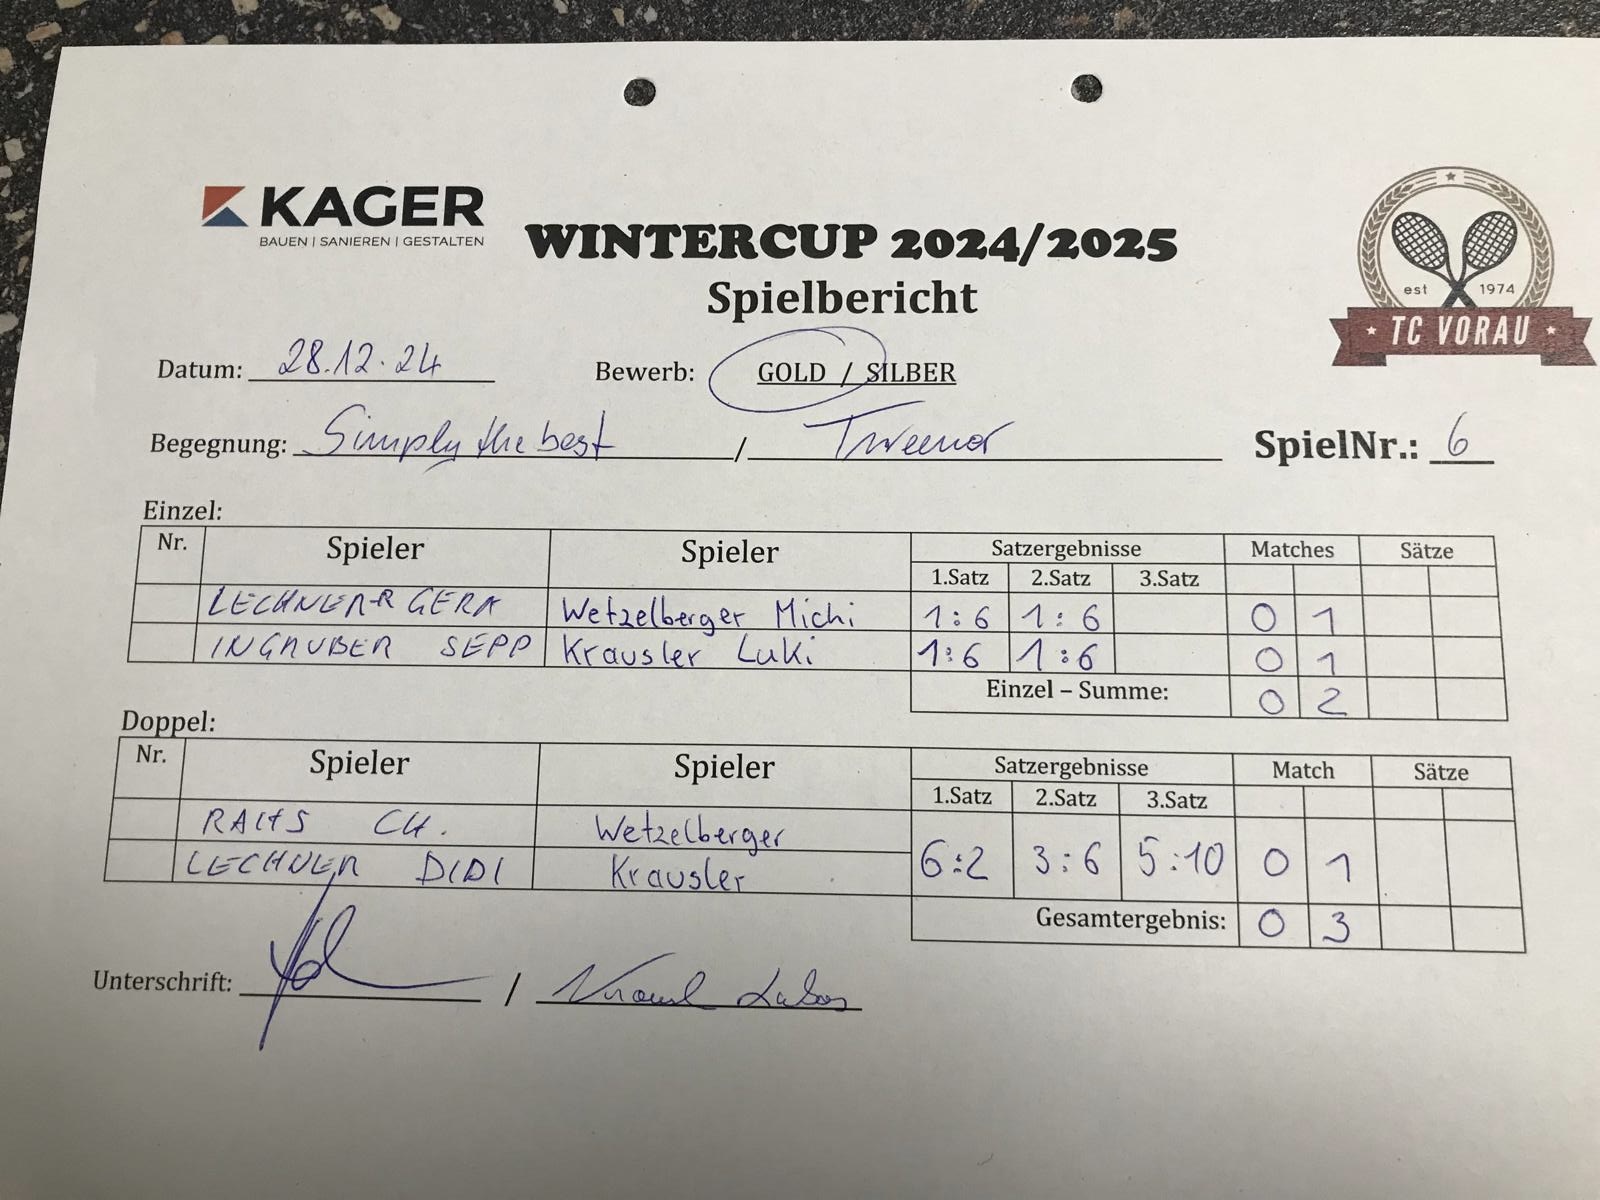 KAGER
BAUEN | SANIEREN | GESTALTEN
WINTERCUP 2024/2025
Spielbericht
est 1974
TC VORAU
Datum: 28.12.24 Bewerb: GOLD / SILBER
Begegnung: Simply the best / Tweener SpielNr.: 6
Einzel:
Nr. Spieler Spieler Satzergebnisse Matches Sätze
1.Satz 2.Satz 3.Satz
LECHNER GERA Wetzelberger Michi 1:6 1:6 0 1
INGRUBER SEPP Krausler Luki 1:6 1:6 0 1
Einzel – Summe: 0 2
Doppel:
Nr. Spieler Spieler Satzergebnisse Match Sätze
1.Satz 2.Satz 3.Satz
CH. Wetzelberger
LECHNER DIDI Krausler
6:2 3:6 5:10 0 1
Gesamtergebnis: 0 3
Unterschrift: /